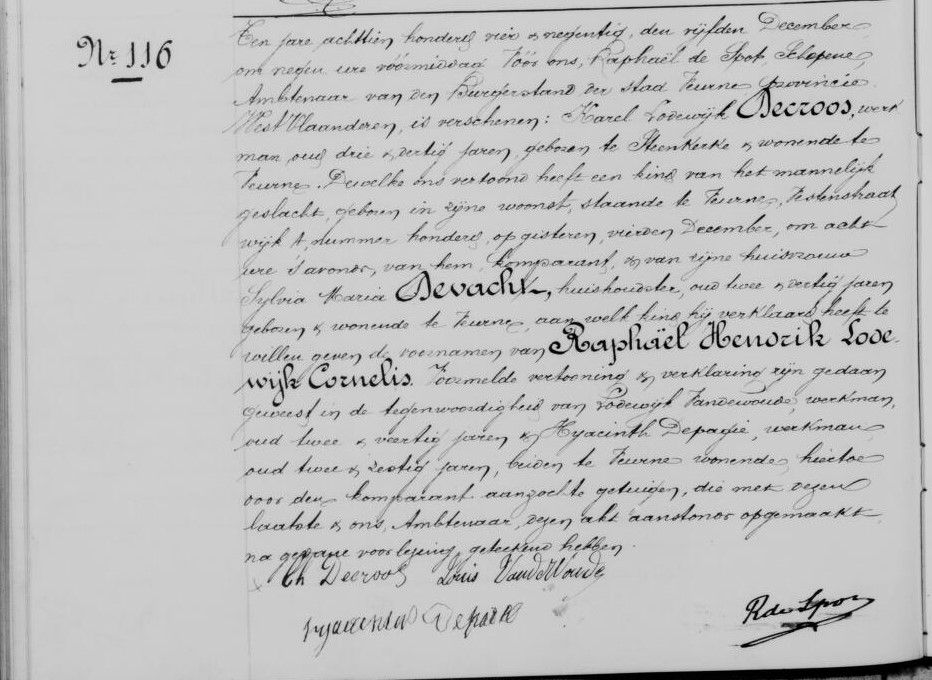 Nr 116
Ten jare achttien honderd vier & negentig, den vijfden December
om negen ure voormiddag Vóór ons, Raphaël de Spot, Schepene,
Ambtenaar van den Burgerstand der stad Veurne provincie
West Vlaanderen, is verschenen: Karel Lodewijk Decroos, werk
man, oud drie & dertig jaren, geboren te Steenkerke & wonende te
Veurne. Dewelke ons vertoond heeft een kind van het mannelijk
geslacht, geboren in zijne woonst, staande te Veurne,
wijk A, nummer honderd, op gisteren, vierden December, om acht
ure 's avonds, van hem, komparant, & van zijne huisvrouw
Sylvia Maria Devacht, huishoudster, oud twee & dertig jaren
geboren & wonende te Veurne, aan welk kind hij verklaard heeft te
willen geven de voornamen van Raphaël Hendrik Lode-
wijk Cornelis. Voormelde vertooning & verklaring zijn gedaan
geweest in de tegenwoordigheid van Lodewijk Vandewoude, werkman,
oud twee & veertig jaren & Hyacinth Depagie, werkman
oud twee & zestig jaren, beiden te Veurne wonende, hiertoe
door den komparant aangezochte getuigen, die met dezen
laatste & ons, Ambtenaar, dezen akt aanstonds opgemaakt
na gedane voorlezing, geteekend hebben.
Ch Decroos Louis VandeWoude
R de Spot